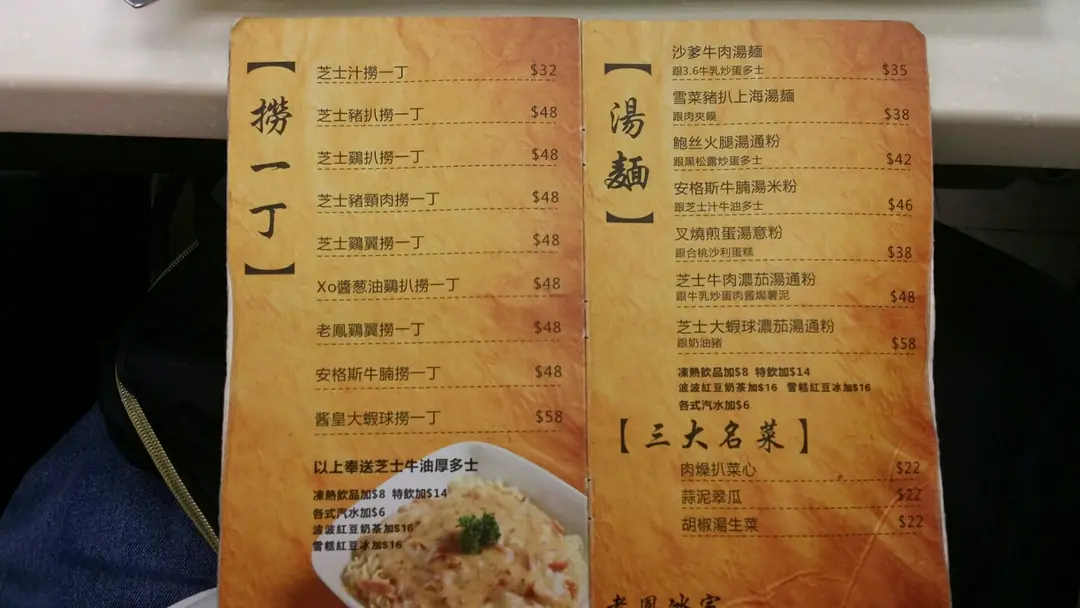 【撈一丁】
芝士汁撈一丁 $32
芝士豬扒撈一丁 $48
芝士鷄扒撈一丁 $48
芝士豬頸肉撈一丁 $48
芝士鷄翼撈一丁 $48
Xo醬葱油鷄扒撈一丁 $48
老鳳鷄翼撈一丁 $48
安格斯牛腩撈一丁 $48
醬皇大蝦球撈一丁 $58
以上奉送芝士牛油厚多士
凍熱飲品加$8 特飲加$14
各式汽水加$6
波波紅豆奶茶加$16
雪糕紅豆冰加$16
【湯麵】
沙爹牛肉湯麵
跟3.6牛乳炒蛋多士 $35
雪菜豬扒上海湯麵
跟肉夾饃 $38
鮑丝火腿湯通粉
跟黑松露炒蛋多士 $42
安格斯牛腩湯米粉
跟芝士汁牛油多士 $46
叉燒煎蛋湯意粉
跟合桃沙利蛋糕 $38
芝士牛肉濃茄湯通粉
跟牛乳炒蛋肉醬焗薯泥 $48
芝士大蝦球濃茄湯通粉
跟奶油豬 $58
凍熱飲品加$8 特飲加$14
波波紅豆奶茶加$16 雪糕紅豆冰加$16
各式汽水加$6
【三大名菜】
肉燥扒菜心 $22
蒜泥翠瓜 $22
胡椒湯生菜 $22
老鳳冰室